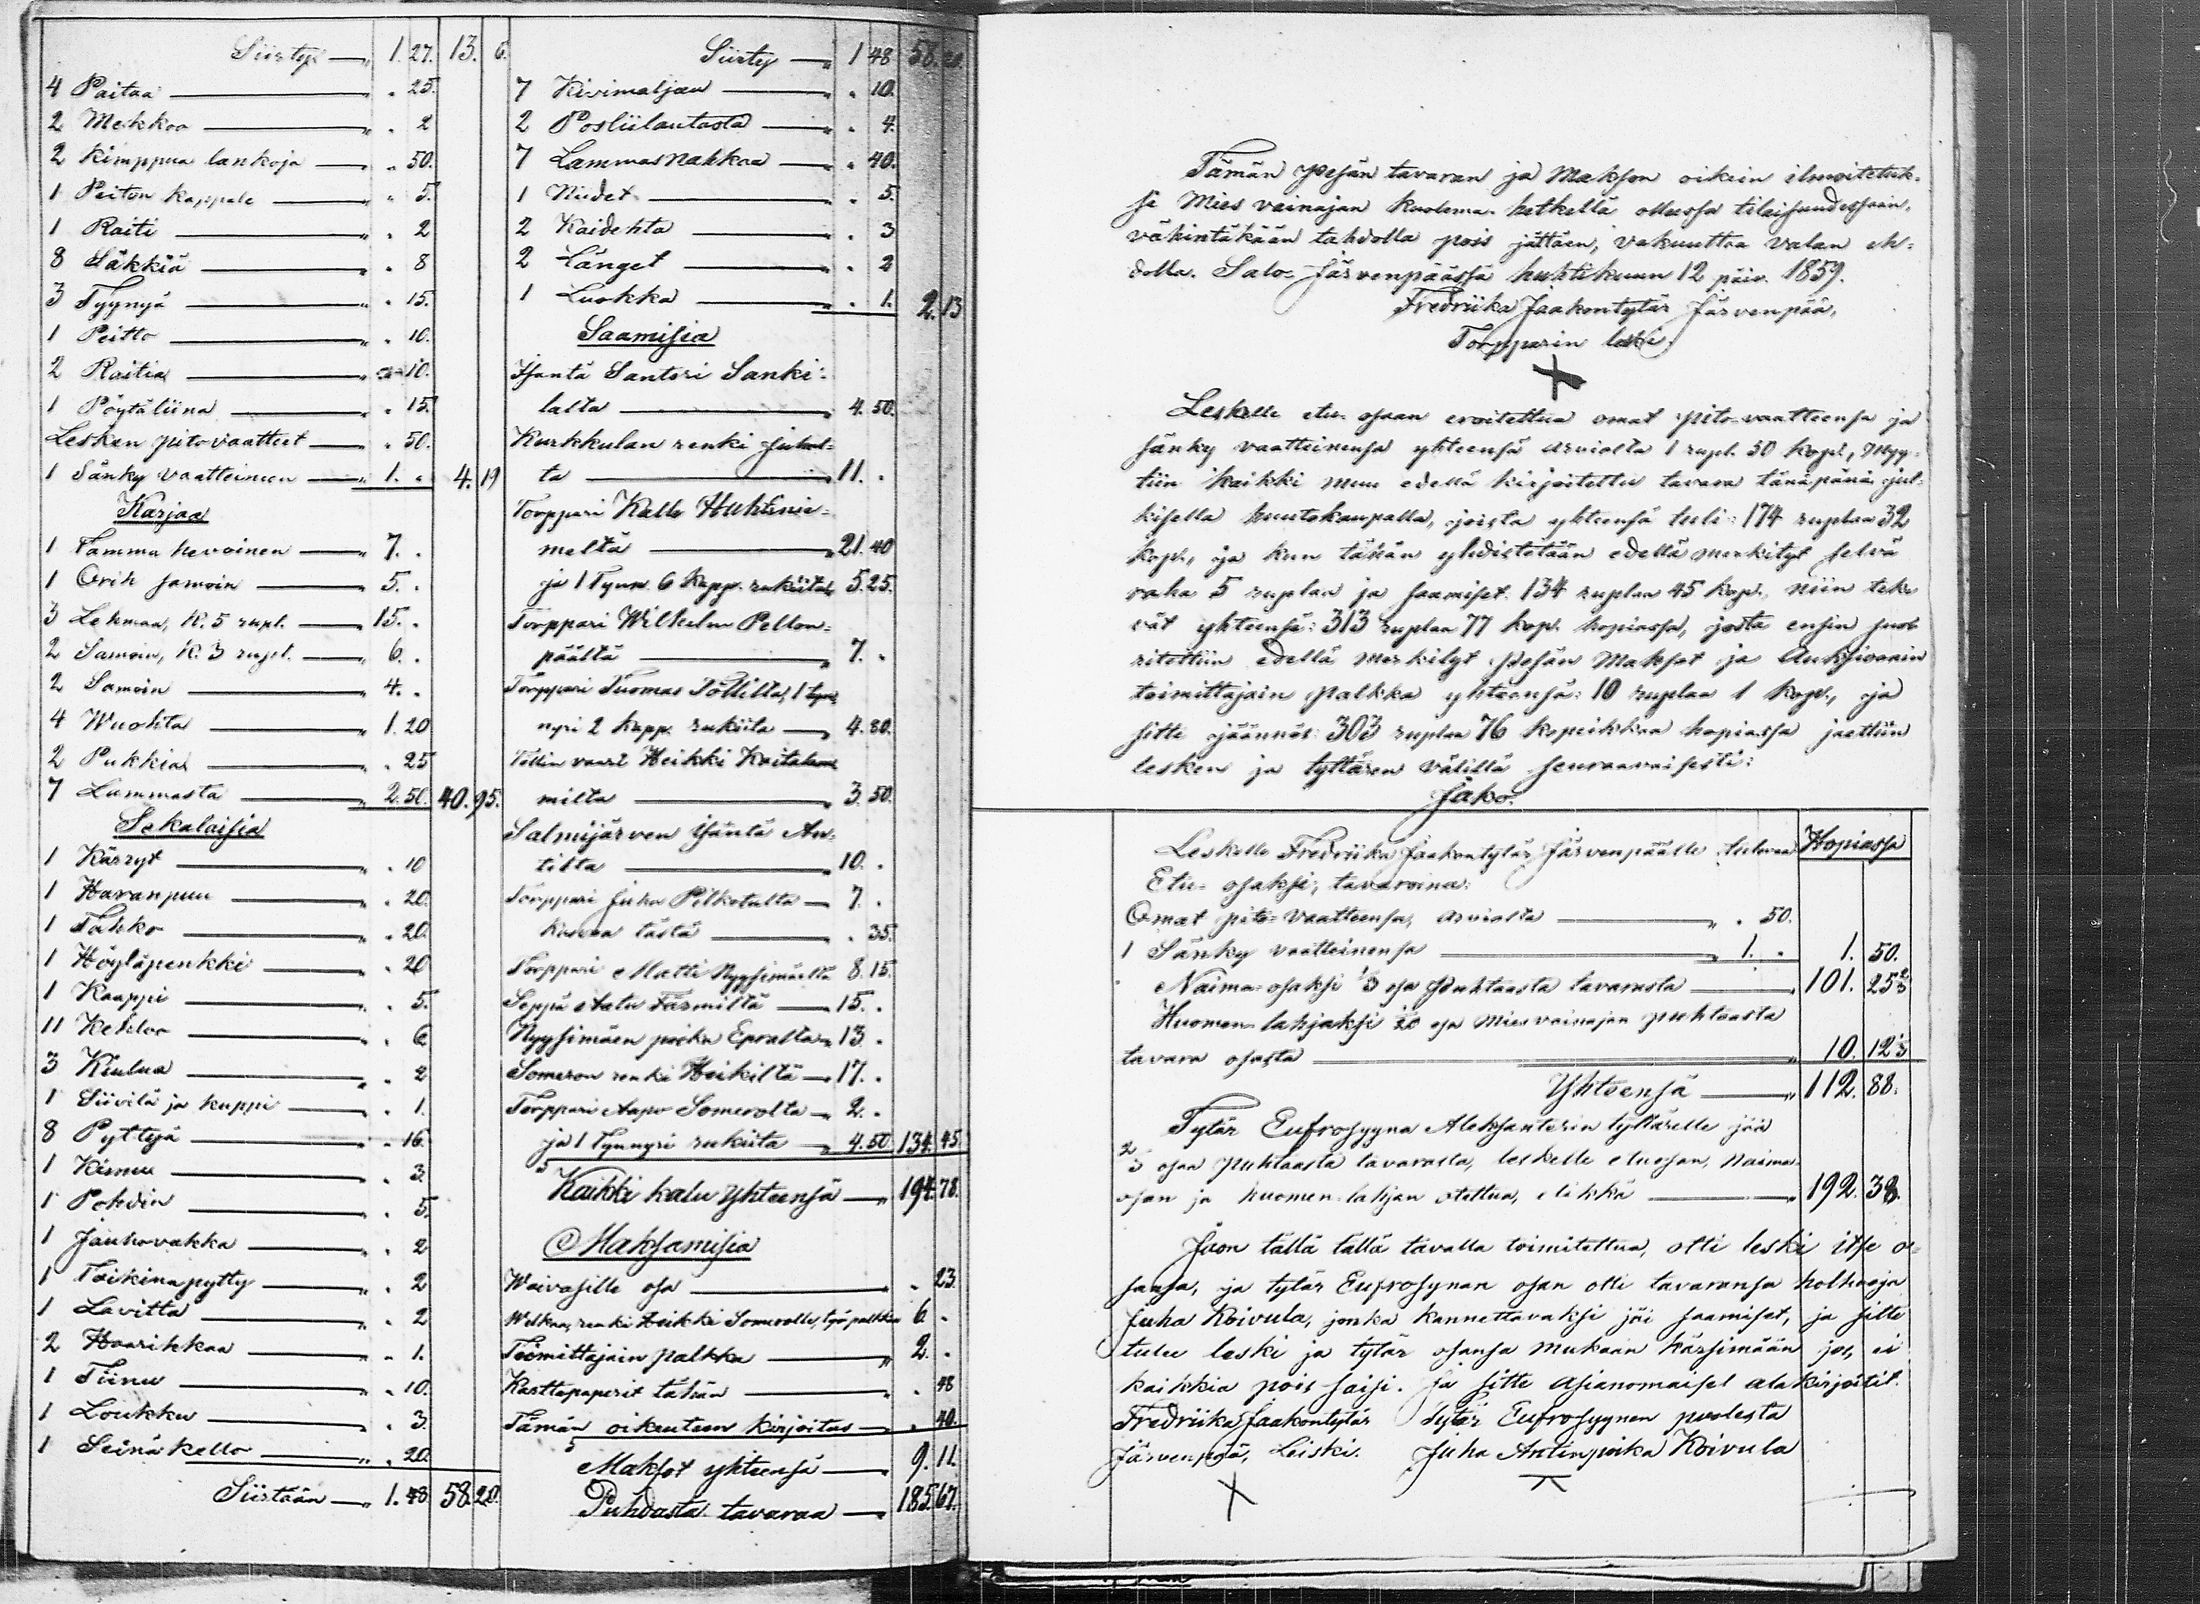 Siirtyi — 1. 27. 13. 6.
4 Paitaa — " 25.
2 Mekkoa — " 2
2 Kimppua lankoja — " 50.
1 Peiton kappale — " 5.
1 Raiti — " 2
8 Säkkiä — " 8
3 Tyynyä — " 15.
1 Peitto — " 10.
2 Raitia — " 10.
1 Pöytäliina — " 15.
Lesken pitovaatteet — " 50.
1 Sänky vaatteineen — 1. " 4. 19
Karjaa
1 Tamma hevoinen — 7. "
1 Orih samoin — 5. "
3 Lehmaa, K. 5 rupl. — 15. "
2 Samoin, K. 3 rupl. — 6. "
2 Samoin — 4. "
4 Wuohta — 1. 20
2 Pukkia — " 25
7 Lammasta — 2. 50. 40. 95.
Sekalaisia
1 Kärryt — " 10
1 Havanpuu — " 20.
1 Tahko — " 20.
1 Höyläpenkki — " 20
1 Kaappi — " 5.
11 Kehloa — " 6
3 Kiulua — " 2
1 Siivilä ja kuppi — " 1.
8 Pyttyä — " 16.
1 Kirnu — " 3.
1 Pohdin — " 5.
1 Jauhovakka — " 2
1 Taikinapytty — " 2
1 Lavitta — " 2
2 Haarikkaa — " 1.
1 Tiinu — " 10.
1 Loukku — " 3.
1 Seinäkello — " 20.
Siirtään — 1. 48 58. 20.
Siirty — 1 48 58. 20.
7 Kivimaljaa — " 10.
2 Posliilautasta — " 4.
7 Lammasnahkaa — " 40.
1 Niidet — " 5.
2 Kaidehta — " 3
2 Länget — " 2
1 Luokka — " 1. 2. 13
Saamisia
Isäntä Santeri Sanki=
lalta — 4. 50.
Kurkkulan renki Juhal=
ta — 11. "
Torppari Kalle Huhtinie=
meltä — 21. 40
ja 1 Tynn. 6 kapp. rukiita 5. 25.
Torppari Wilhelm Pellon=
päältä — 7. "
Torppari Tuomas Töllilta, 1 tyn=
nyri 2 kapp. rukiita — 4. 80.
Töllin vaari Heikki Kaitalam
milta — 3. 50.
Salmijärven isäntä An=
tilta — 10. "
Torppari Juha Pilkotulta — 7. "
Kasvoa tästä — " 35.
Torppari Matti Nyysimäeltä 8. 15.
Seppä Aatu Färmiltä — 15. "
Nyysimäen poika Epralta — 13. "
Someron renki Heikiltä — 17. "
Torppari Aapo Somerolta — 2. "
ja 1 Tynnyri rukiita — 4. 50. 134. 45.
Kaikki kalu yhteensä — 194. 78.
Maksamisia
Waivasille osa — " 23.
Welkaa, renki Heikki Somerolle, työ palkkaa 6 "
Toimittajain palkka — 2. "
Karttapaperit tähän — " 48
Tämän oikeuteen kirjoitus — " 40.
Maksot yhteensä — 9. 11.
Puhdasta tavaraa — 185. 67.
Tämän pesän tavaran ja makson oikein ilmoitetuk=
si Mies vainajan kuolema-hetkellä ollessa tilaisuudessaan,
vähintäkään tahdolla pois jättäen, vakuuttaa valan eh=
dolla. Salo-Järvenpäässä huhtikuun 12 päiv. 1859.
Fredriika Jaakontytär Järvenpää,
Torpparin leski.
Leskelle etu-osaan eroitettua omat pito-vaatteensa ja
sänky vaatteinensa yhteensä arviolta 1 rupl. 50 kop., myy=
tiin kaikki muu edellä kirjoitettu tavara tänäpänä jul=
kisella huutokaupalla, joista yhteensä tuli: 174 ruplaa 32
kop., ja kun tähän yhdistetään edellä merkityt selvä
raha 5 ruplaa ja saamiset 134 ruplaa 45 kop., niin teke
vät yhteensä: 313 ruplaa 77 kop. hopiassa, josta ensin suo
ritettiin edellä merkityt pesän maksot ja Auksiooniin
toimittajain palkka yhteensä: 10 ruplaa 1 kop., ja
sitte jäännös: 303 ruplaa 76 kopeikkaa hopiassa jaettiin
lesken ja tyttären välillä seuraavaisesti:
Jako.
Leskelle Fredriika Jaakontytär Järvenpäälle tulevaa Hopiassa
Etu-osaksi, tavaroina:
Omat pito-vaatteensa, arviolta — " 50.
1 Sänky vaatteinensa — 1. " 1. 50.
Naima-osaksi 1/3 osa puhtaasta tavarasta — 101. 25 1/3
Huomen-lahjaksi 1/20 osa miesvainajan puhtaasta
tavara osasta — 10. 12 2/3
Yhteensä — 112. 88.
Tytär Eufrosyyna Aleksanterin tyttärelle jää
2/3 osaa puhtaasta tavarasta, leskelle etuosan, naima-
osan ja huomen-lahjan otettua, elikkä — 192. 38.
Jaon tällä tällä tavalla toimitettua, otti leski itse o=
sansa, ja tytär Eufrosynan osan otti tavaransa holhooja
Juha Koivula, jonka kannettavaksi jäi saamiset, ja sitte
tulee leski ja tytär osansa mukaan kärsimään jos, ei
kaikkia pois saisi. Ja sitte asianomaiset alakirjoitit.
Fredriika Jaakontytär Tytär Eufrosyynan puolesta
Järvenpää, Leiski. Juha Antinpoika Koivula